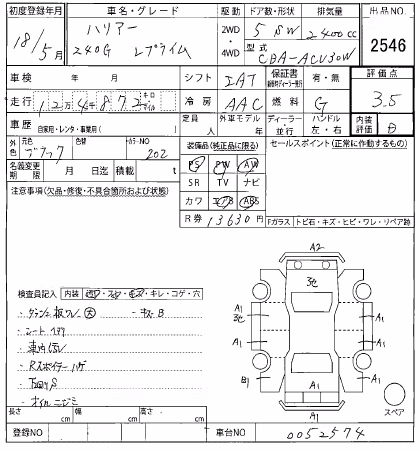 初度登録年月 車名・グレード 駆動 ドア数・形状 排気量 出品NO.
18/5月 ハリアー 240G Lプライム 2WD・4WD 5 SW 2400cc 2546
型式 CBA-ACU30W
車検 年 月 シフト IAT 保証書 有・無 評価点
走行 12万4千872 キロ マイル 冷房 AAC 燃料 G 3.5
車歴 自家用・レンタ・事業用( ) 定員 人 外車モデル 年 ディーラー 並行 ハンドル 左・右 内装評価 B
外色 元色 ブラック 色替 カラーNO 202 装備品(純正品に限る) セールスポイント(正常に作動するもの)
名義変更期限 月 日迄 積載 t PS PW AW
注意事項(欠品・修復・不具合箇所および状態) SR TV ナビ
カワ エアB ABS
R券 13630円 Fガラス トビ石・キズ・ヒビ・ワレ・リペア跡
A2
3化
検査員記入 内装 コゲ・穴
A1 3化 A1
・ダッシュ板ワレ 大 ・キズB
・シート
・車内
A1 A1
・Rスポイラーハゲ
B1 A1 A1
・下回りS
・オイルニジミ
A1
スペア
長さ cm 幅 cm 高さ cm
登録NO 車台NO 0052574